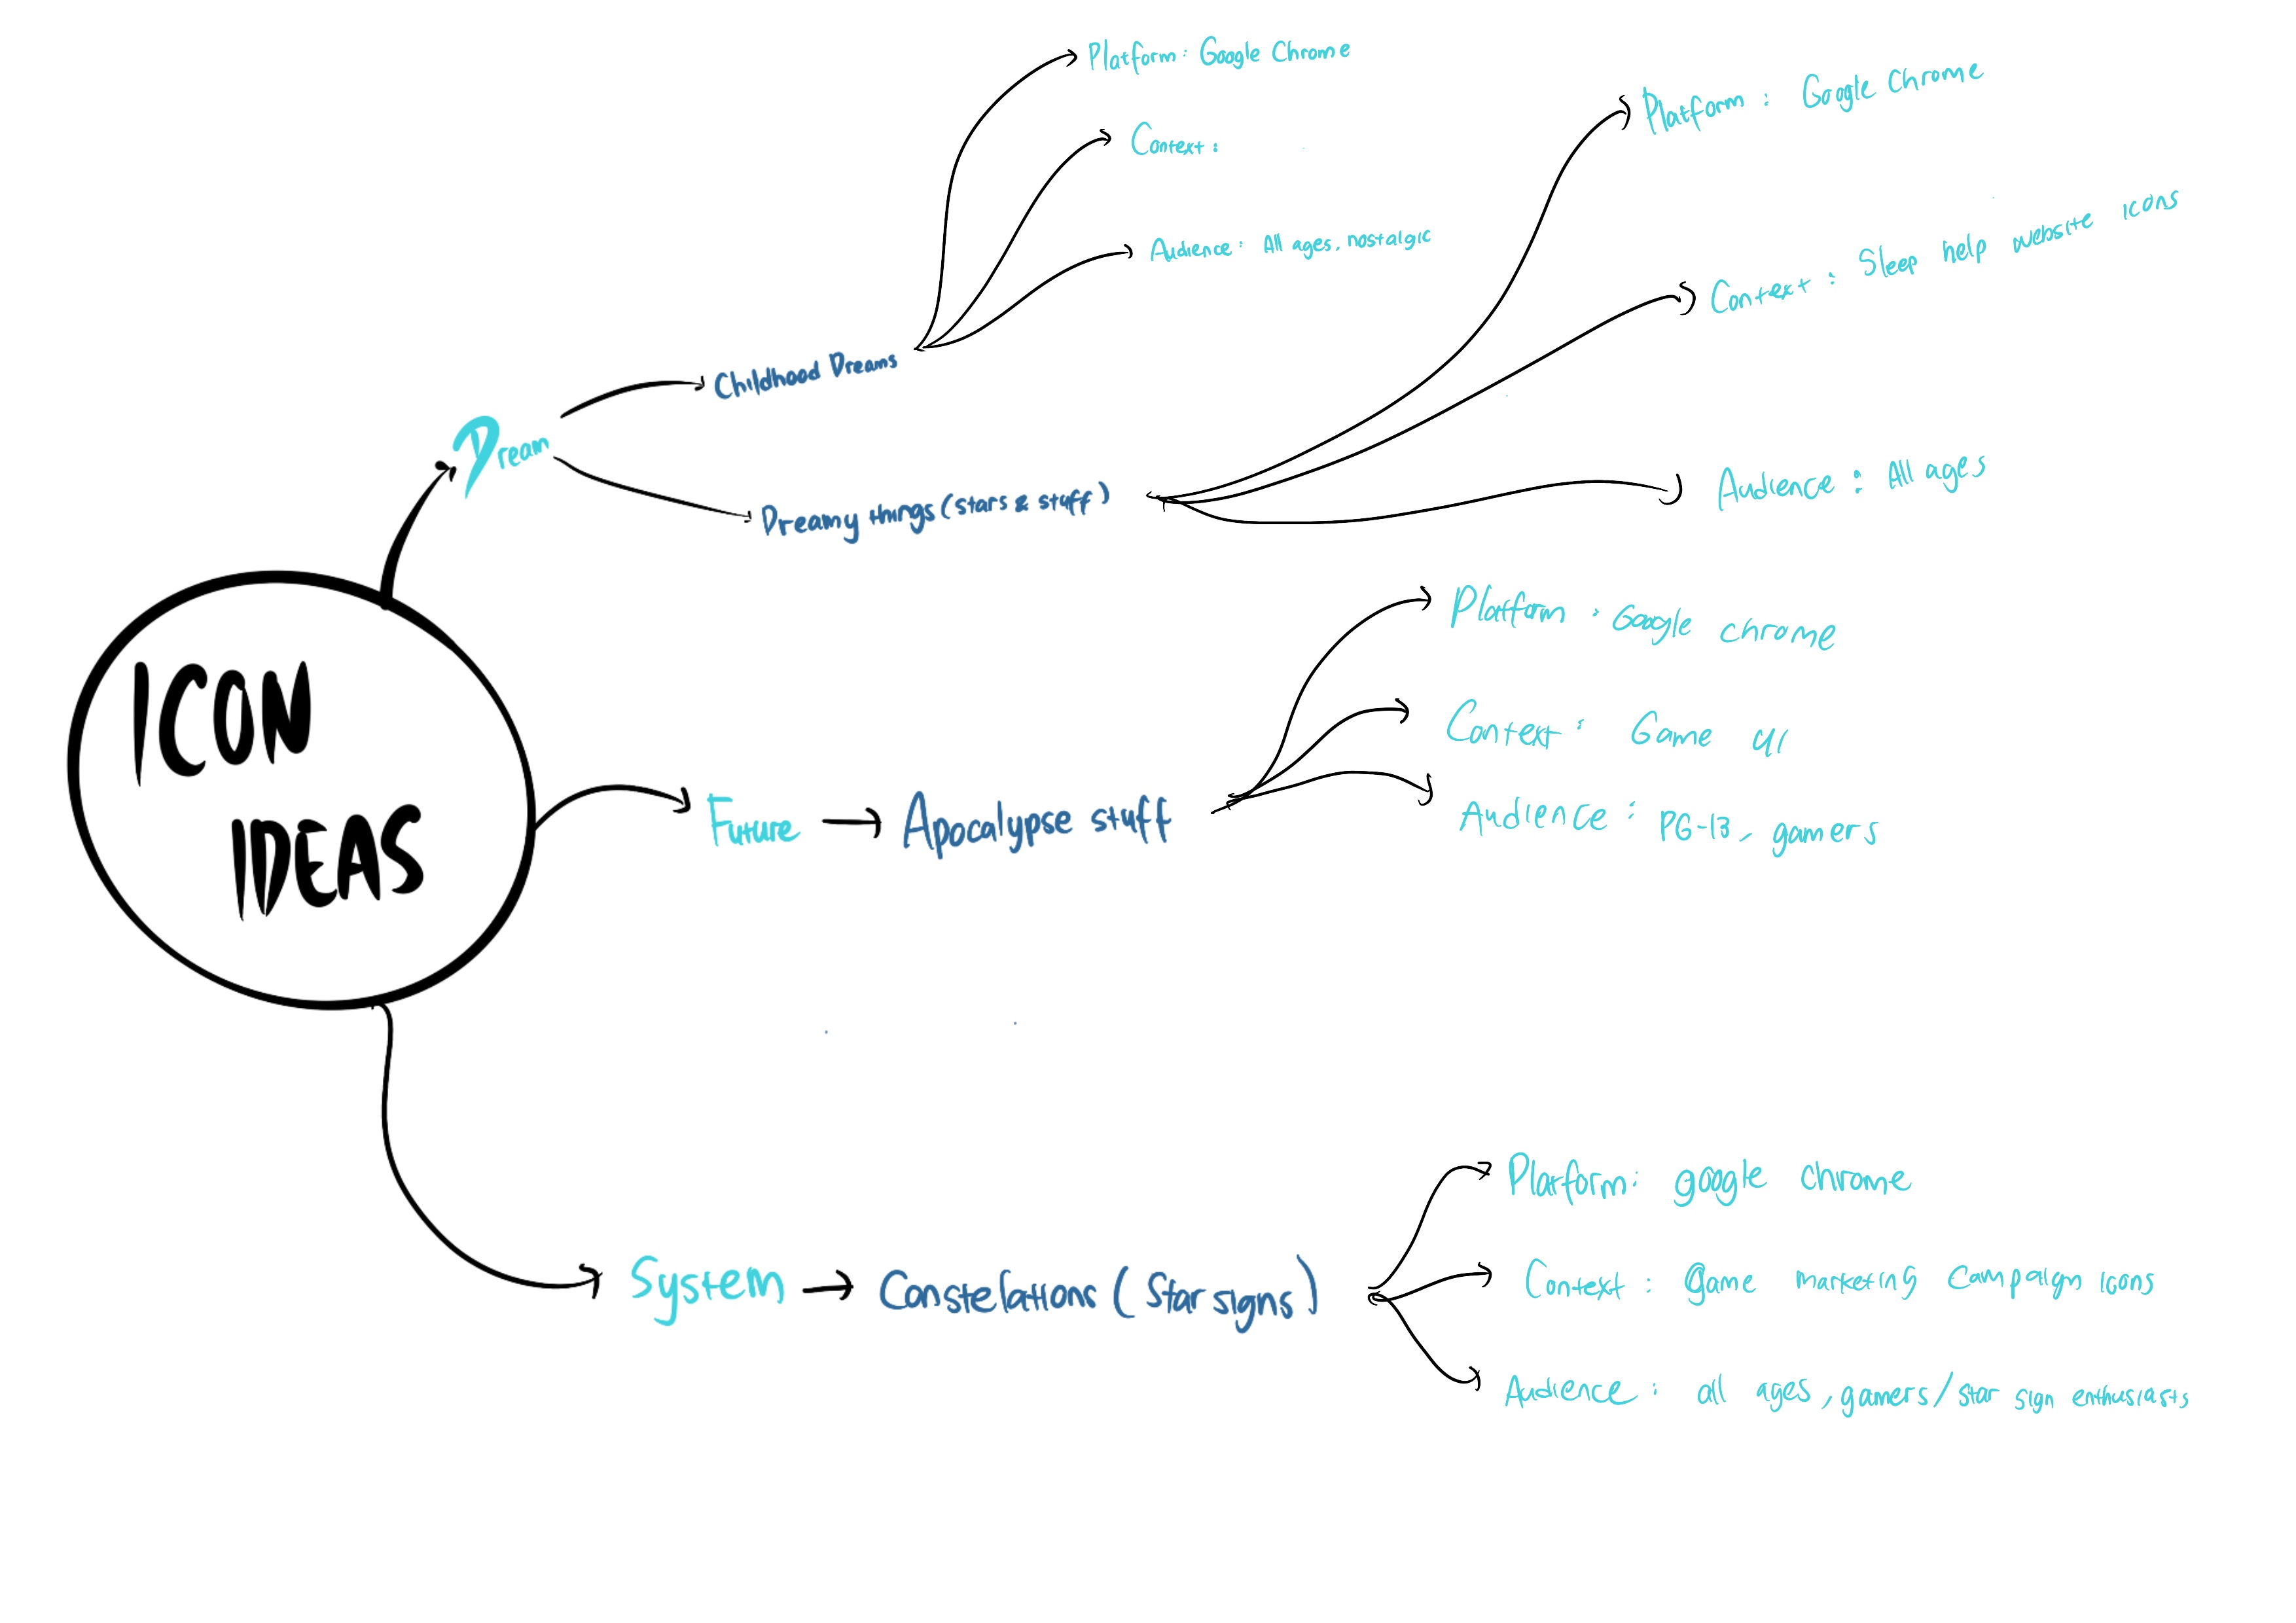 ICON
IDEAS
Dream
Childhood Dreams
Platform: Google Chrome
Context:
Audience: All ages, nostalgic
Dreamy things (stars & stuff)
Platform: Google Chrome
Context: Sleep help website icons
Audience: All ages
Future
Apocalypse stuff
Platform: Google chrome
Context: Game UI
Audience: PG-13, gamers
System
Constelations (Star signs)
Platform: google chrome
Context: Game marketing campaign icons
Audience: all ages, gamers/star sign enthusiasts